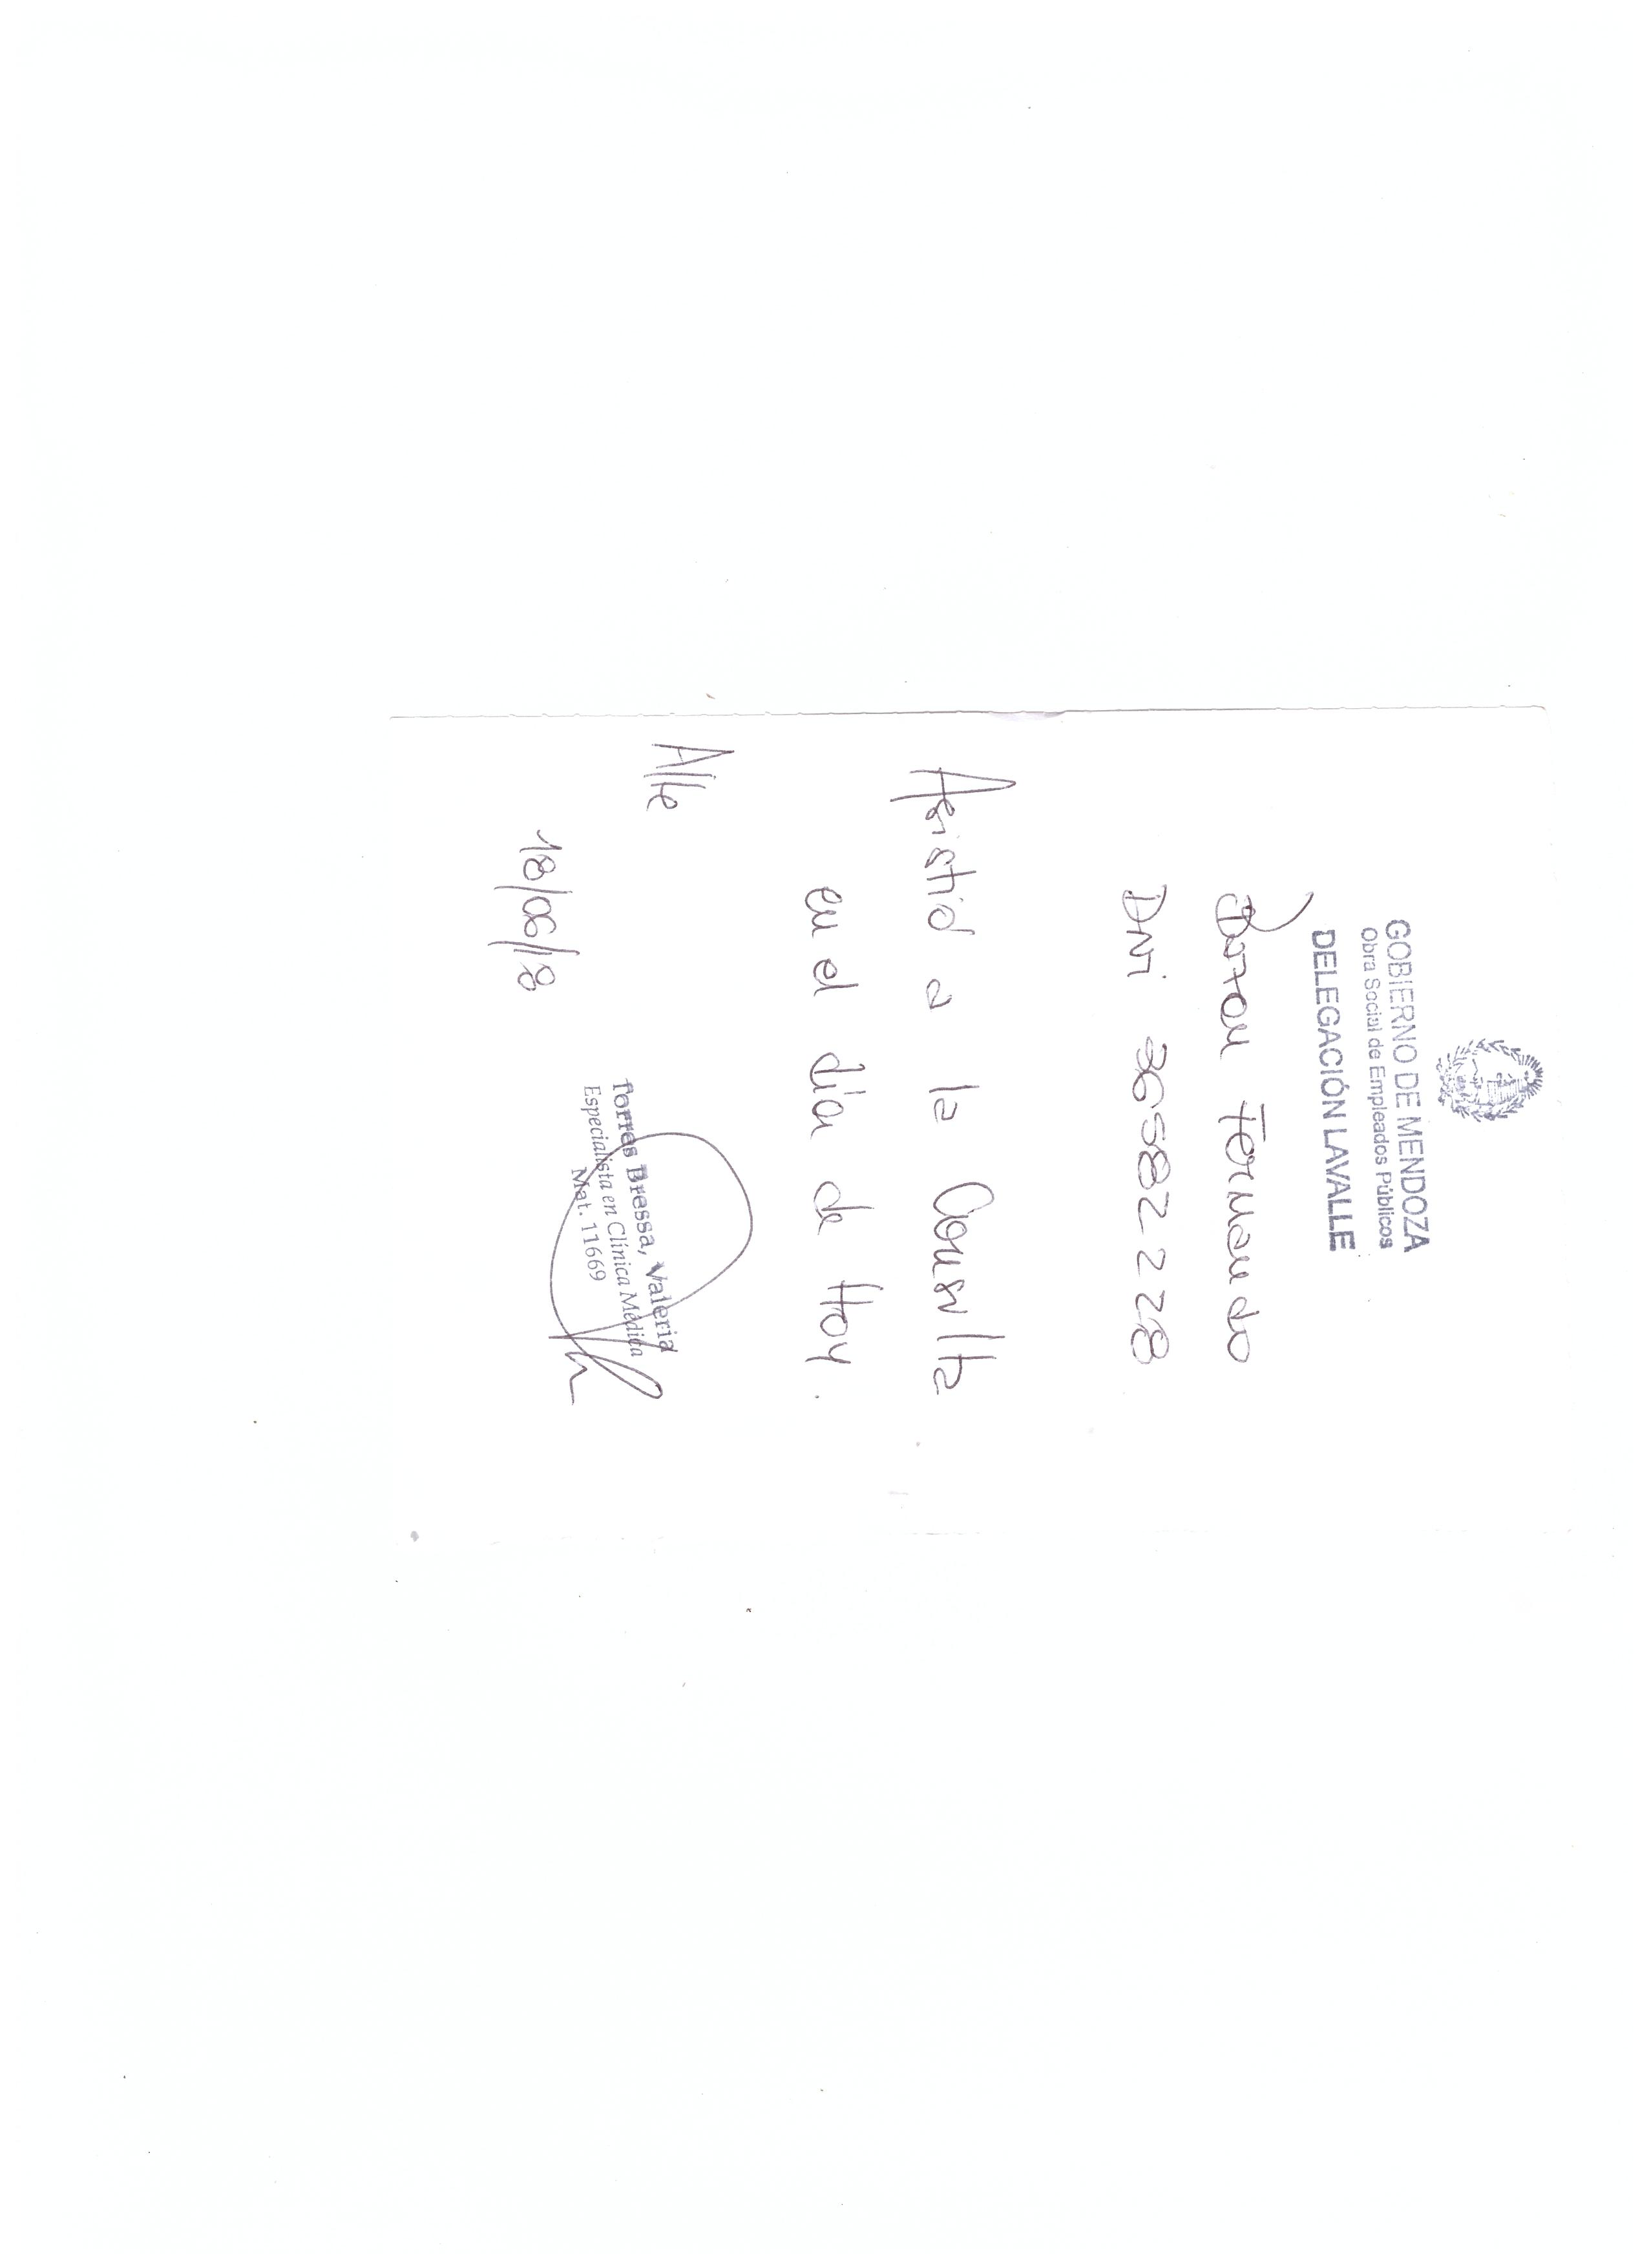 GOBIERNO DE MENDOZA
Obra Social de Empleados Públicos
DELEGACIÓN LAVALLE
Fernando
DNI 36582228
Asistió a la Consulta
en el día de Hoy.
Atte
18/06/18
Torres Bressa, Valeria
Especialista en Clínica Médica
Mat. 11669